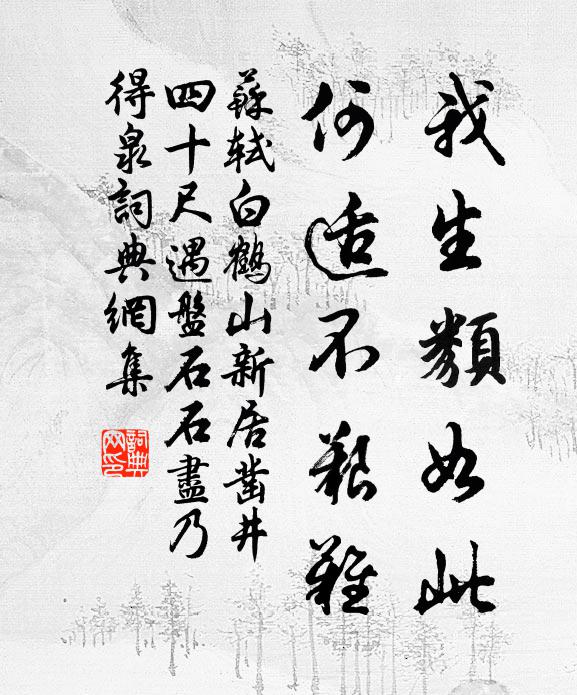 我生類如此
何适不艱難
蘇軾白鶴山新居凿井
四十尺遇盤石石盡乃
得泉詞典網集
詞典
网印